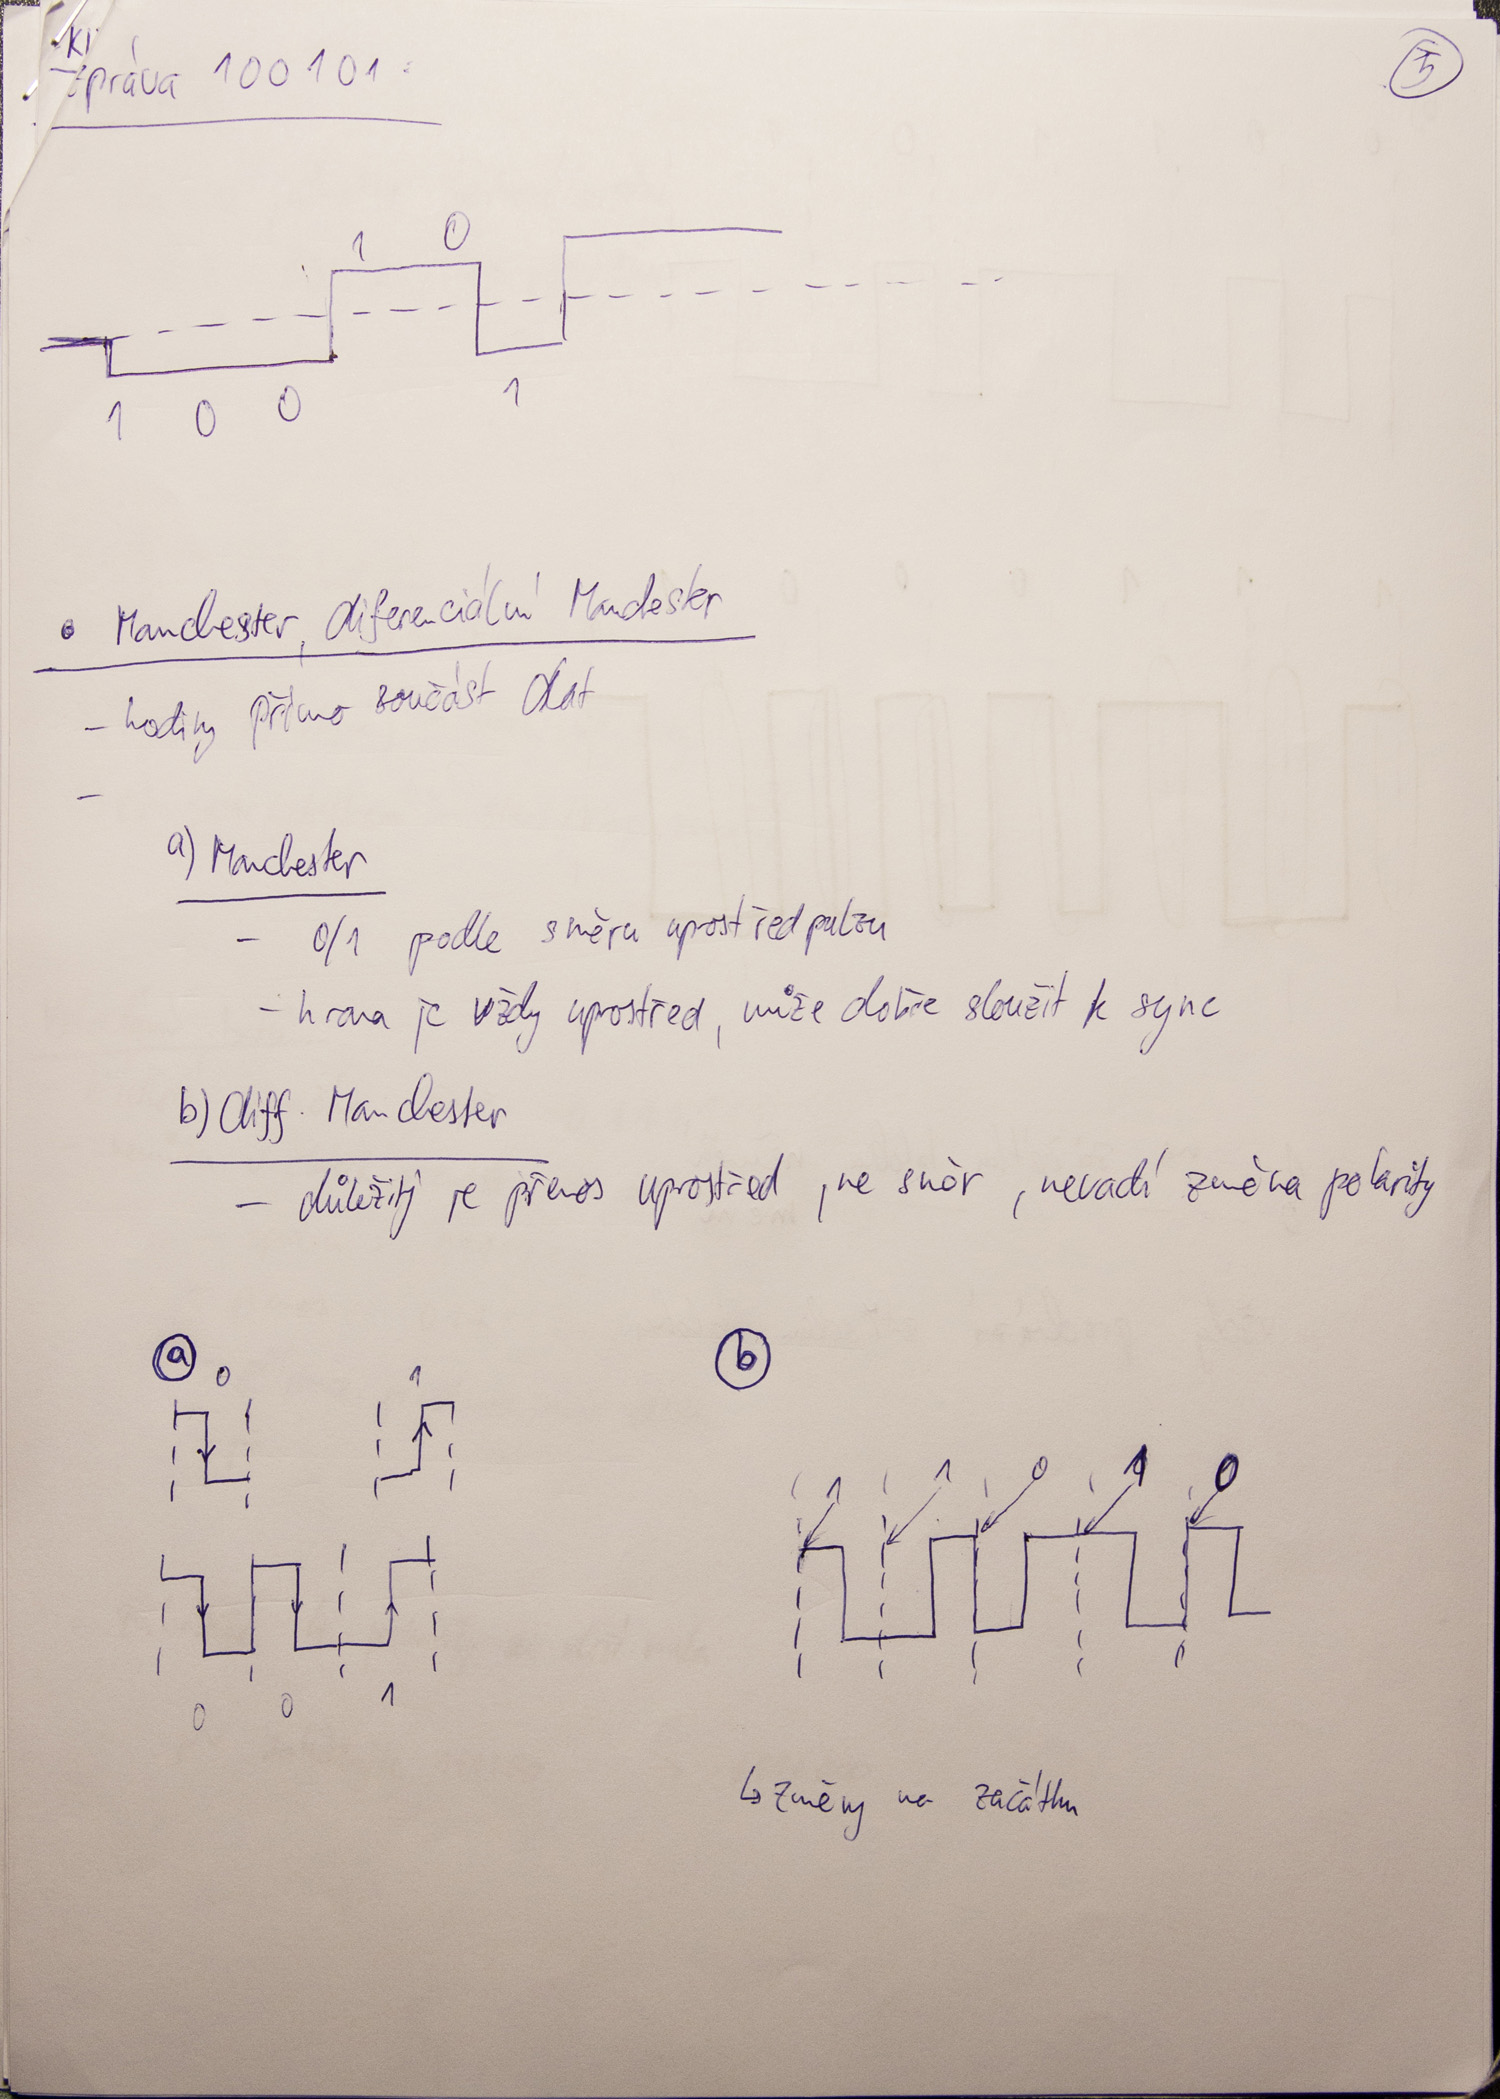 zpráva 100101
5
1 0
1 0 0 1
• Manchester, diferenciální Manchester
- hodiny přímo součást dat
-
a) Manchester
- 0/1 podle směru uprostřed pulzu
- hrana je vždy uprostřed, může dobře sloužit k sync
b) diff. Manchester
- důležitý je přenos uprostřed, ne směr, nevadí změna polarity
a b
0 1
1 1 0 1 0
0 0 1
↳ změny na začátku